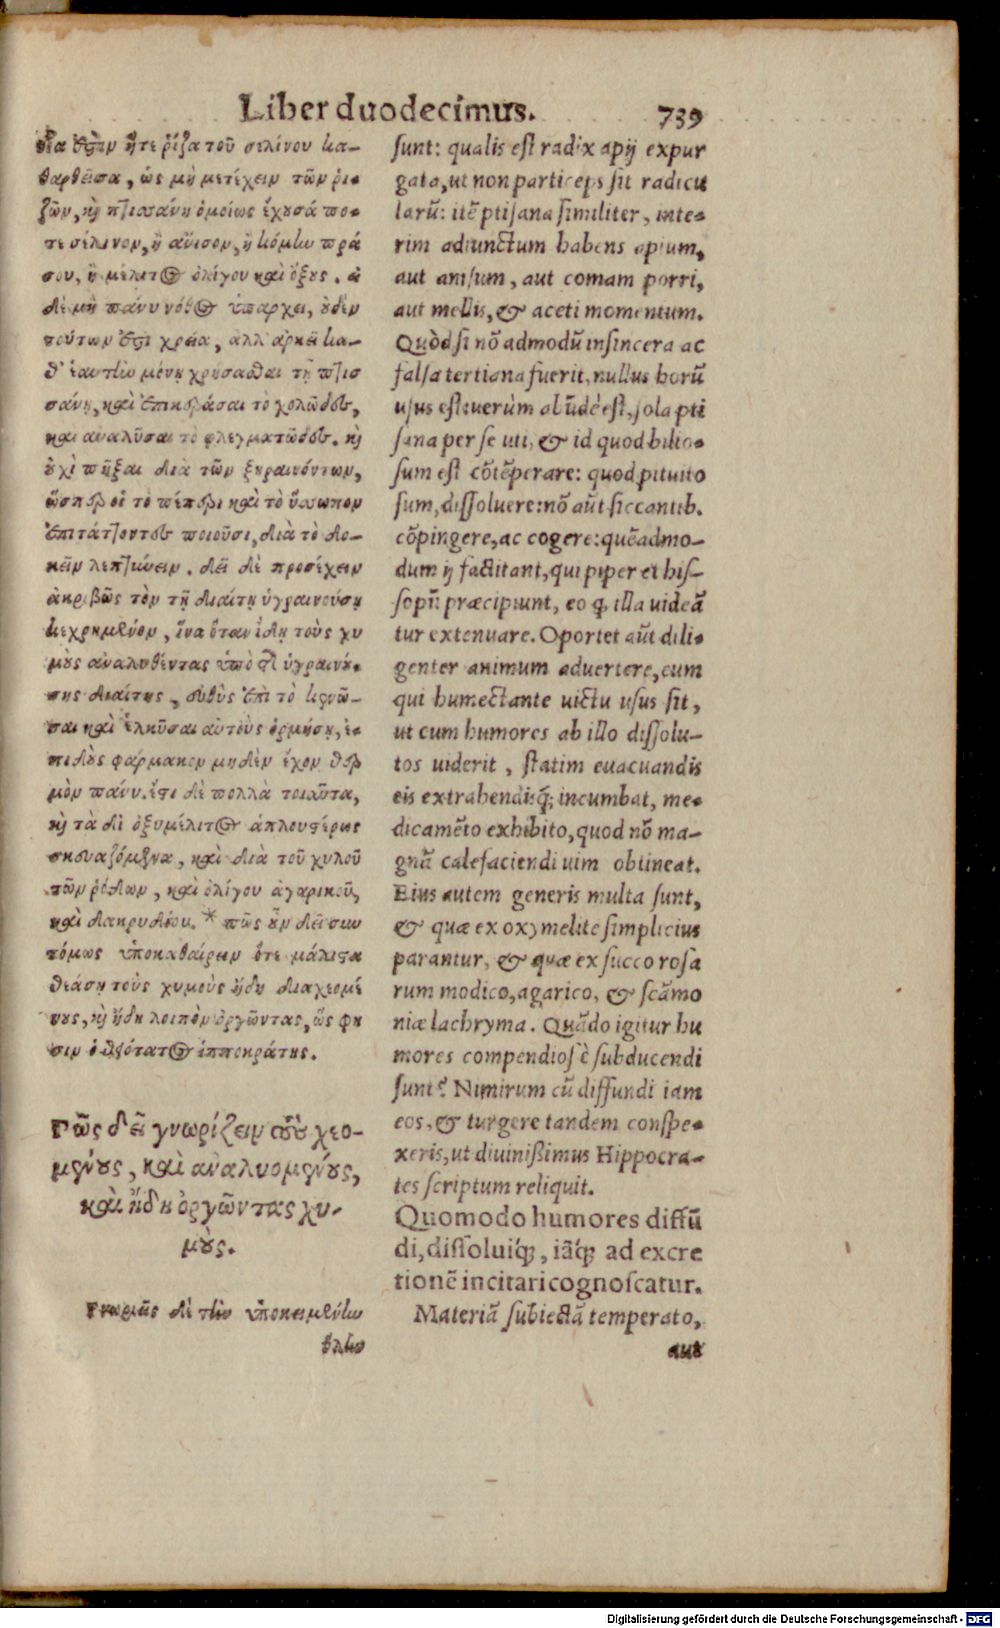 Liber duodecimus. 739
οἷά ἐστιν ἥτε ῥίζα τοῦ σελίνου κα-
θαρθεῖσα, ὡς μὴ μετέχειν τῶν ῥι-
ζῶν, καὶ πτισσάνη ὁμοίως ἔχουσά πο-
τε σέλινον, ἢ ἄνισον, ἢ κόμην πρά
σου, ἢ μέλιτος ὀλίγου καὶ ὄξους. εἰ
δὲ μὴ πάνυ νόθος ὑπάρχει, οὐδὲν
τούτων ἐστὶ χρεία, ἀλλ' ἀρκεῖ κα-
θ' ἑαυτὴν μόνῃ χρήσασθαι τῇ πτισ
σάνῃ, καὶ ἐπικεράσαι τὸ χολῶδες,
καὶ ἀναλῦσαι τὸ φλεγματῶδες. καὶ
οὐχὶ πῆξαι διὰ τῶν ξηραινόντων,
ὥσπερ οἱ τὸ πέπερι καὶ τὸ ὕσσωπον
ἐπιτάττοντες ποιοῦσι, διὰ τὸ δο-
κεῖν λεπτύνειν. δεῖ δὲ προσέχειν
ἀκριβῶς τὸν τῇ διαίτῃ ὑγραινούσῃ
κεχρημένον, ἵνα ὅταν ἴδῃ τοὺς χυ
μοὺς ἀναλυθέντας ὑπὸ τῆς ὑγραινού-
σης διαίτης, εὐθὺς ἐπὶ τὸ κενῶ-
σαι καὶ ἑλκῦσαι αὐτοὺς ὁρμήσῃ, ἐ-
πιδοὺς φάρμακον μηδὲν ἔχον θερ
μὸν πάνυ. ἔστι δὲ πολλὰ τοιαῦτα,
καὶ τὰ δι' ὀξυμέλιτος ἁπλουστέρως
σκευαζόμενα, καὶ διὰ τοῦ χυλοῦ
τῶν ῥόδων, καὶ ὀλίγου ἀγαρικοῦ,
καὶ δακρυδίου. * πῶς οὖν δεῖ συν
τόμως ὑποκαθαίρειν ὅτε μάλιστα
θεάσῃ τοὺς χυμοὺς ἤδη διαχεομέ
νους, καὶ ἤδη λοιπὸν ὀργῶντας, ὥς φη
σιν ὁ θειότατος ἱπποκράτης.
Πῶς δεῖ γνωρίζειν τοὺς χεο-
μένους, καὶ ἀναλυομένους,
καὶ ἤδη ὀργῶντας χυ-
μούς.
Γνωριεῖς δὲ τὴν ὑποκειμένην
ὕλην
sunt: qualis est radix apij expur
gata, ut non particeps sit radicu
larũ: itẽ ptisana similiter, inte-
rim adiunctum habens apium,
aut anisum, aut comam porri,
aut mellis, & aceti momentum.
Quòd si nõ admodũ insincera ac
falsa tertiana fuerit, nullus horũ
usus est: uerùm abũdè est, sola pti
sana per se uti, & id quod bilio-
sum est cõtẽperare: quod pituito
sum, dissoluere: nõ aũt siccantib.
cõpingere, ac cogere: quẽadmo-
dum ij factitant, qui piper et his-
sopũ præcipiunt, eo ꝙ illa uideã
tur extenuare. Oportet aũt dili-
genter animum aduertere, eum
qui humectante uictu usus sit,
ut cum humores ab illo dissolu-
tos uiderit, statim euacuandis
eis extrahendisq́; incumbat, me-
dicamẽto exhibito, quod nõ ma-
gnã calefaciendi uim obtineat.
Eius autem generis multa sunt,
& quæ ex oxymelite simplicius
parantur, & quæ ex succo rosa
rum modico, agarico, & scãmo
niæ lachryma. Quãdo igitur hu
mores compendiosè subducendi
sunt? Nimirum cũ diffundi iam
eos, & turgere tandem conspe-
xeris, ut diuinißimus Hippocra-
tes scriptum reliquit.
Quomodo humores diffũ
di, dissoluiq́;, iãq́; ad excre
tionẽ incitari cognoscatur.
Materiã subiectã temperato,
aut
Digitalisierung gefördert durch die Deutsche Forschungsgemeinschaft - DFG